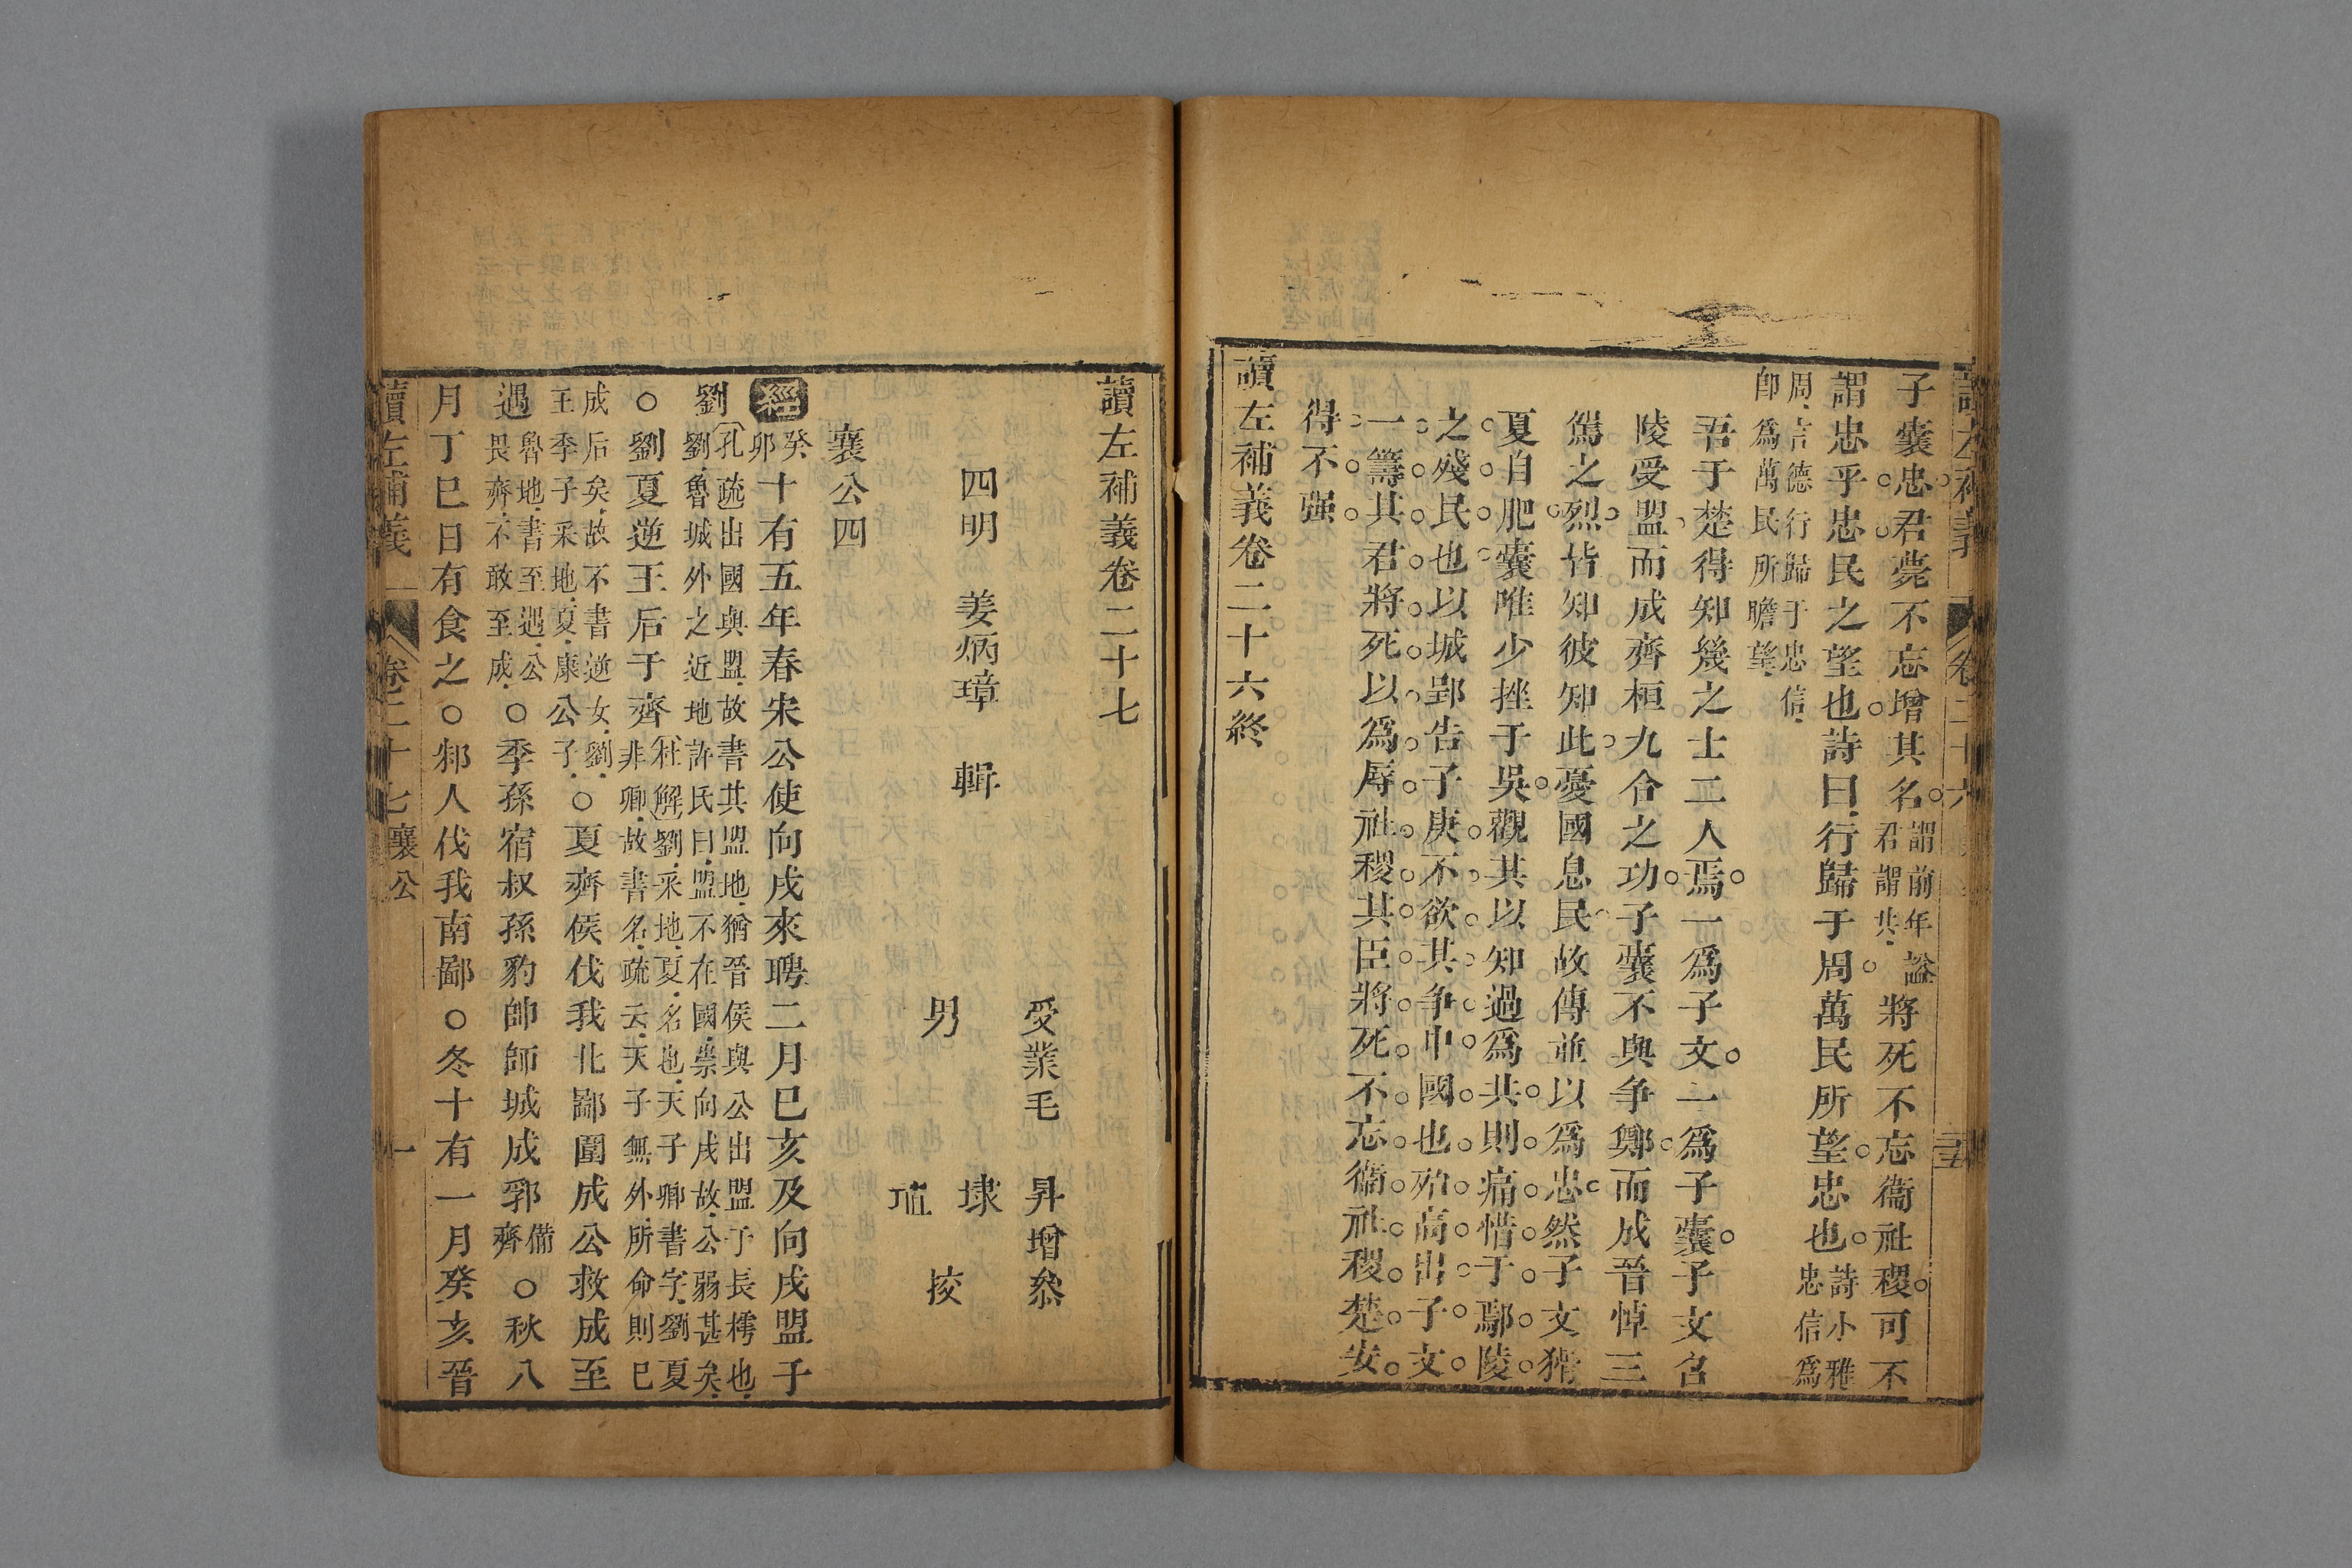 子囊忠君薨不忘增其名謂前年諡君謂共將死不忘衞社稷可不
謂忠乎忠民之望也詩曰行歸于周萬民所望忠也詩小雅忠信爲
周言德行歸于忠信卽爲萬民所瞻望
吾于楚得知幾之士二人焉一爲子文一爲子囊子文召
陵受盟而成齊桓九合之功子囊不與爭鄭而成晉悼三
駕之烈皆知彼知此憂國息民故傳並以爲忠然子文猾
夏自肥囊唯少挫于吳觀其以知過爲共則痛惜于鄢陵
之殘民也以城郢告子庚不欲其爭中國也殆高出子文
一籌其君將死以爲辱社稷其臣將死不忘衞社稷楚安
得不强
讀左補義卷二十六終
讀左補義卷二十七
受業毛昇增叅
四明 姜炳璋 輯
男 埭
挍
襄公四
經癸卯十有五年春宋公使向戌來聘二月巳亥及向戌盟于
劉孔疏出國與盟故書其盟地猶晉侯與公出盟于長樗也劉魯城外之近地許氏曰盟不在國崇向戌故公弱甚矣
○劉夏逆王后于齊杜解劉采地夏名也天子卿書字劉夏非卿故書名疏云天子無外所命則巳
成后矣故不書逆女劉王季子采地夏康公子○夏齊侯伐我北鄙圍成公救成至
遇魯地書至遇公畏齊不敢至成○季孫宿叔孫豹帥師城成郛備齊○秋八
月丁巳日有食之○邾人伐我南鄙○冬十有一月癸亥晉
讀左補義 卷二十七襄公 一